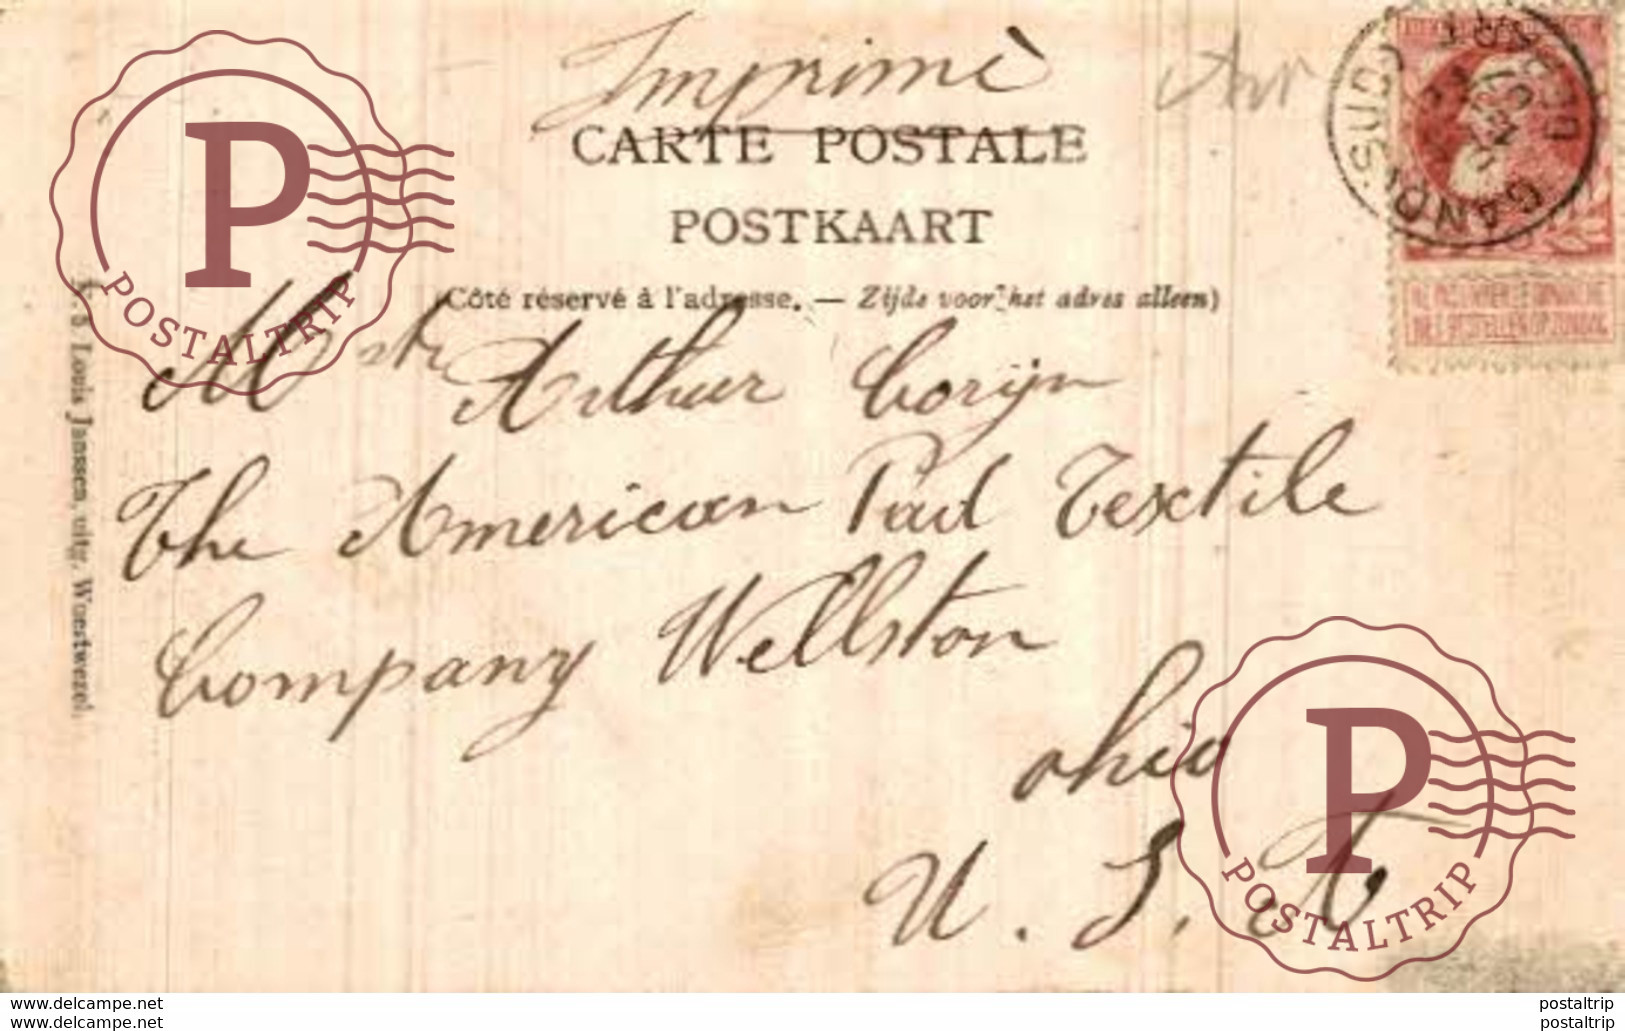 Imprimé
CARTE POSTALE
POSTKAART
(Côté réservé à l'adresse. — Zijde voor het adres alleen)
Mstr Arthur Corijn
The American Pad Textile
Company Wellston
Ohio
U. S. A
Louis Janssen, uitg. Woestwezel.
GAND (SUD)
DÉPART
NE PAS LIVRER LE DIMANCHE
NIET BESTELLEN OP ZONDAG
P
POSTALTRIP
P
POSTALTRIP
www.delcampe.net
postaltrip
www.delcampe.net
postaltrip